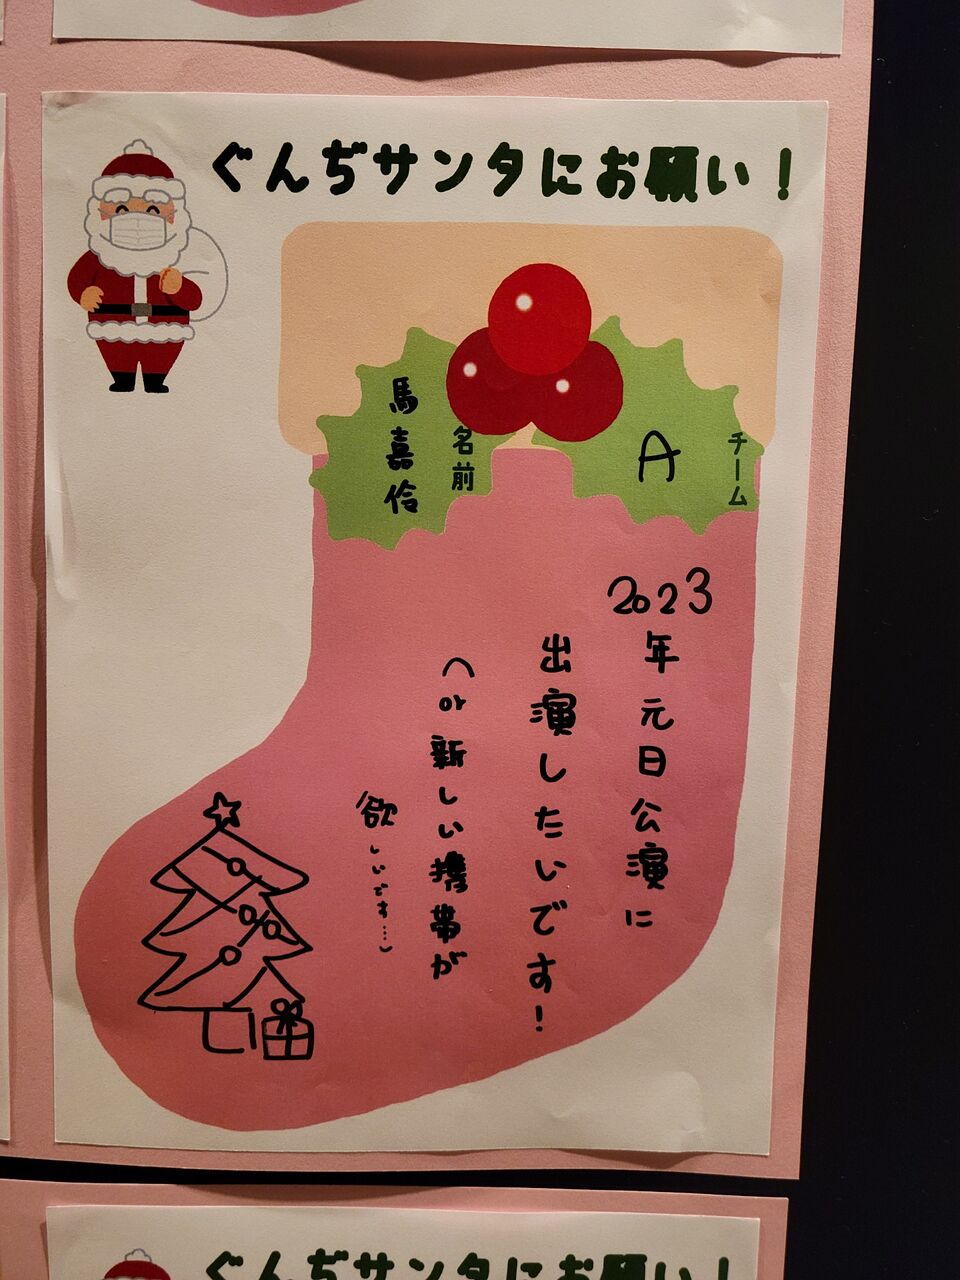 ぐんぢサンタにお願い！
チーム
A
名前
馬嘉伶
2023年元日公演に
出演したいです！
(or 新しい携帯が
欲しいです…)
ぐんぢサンタにお願い！